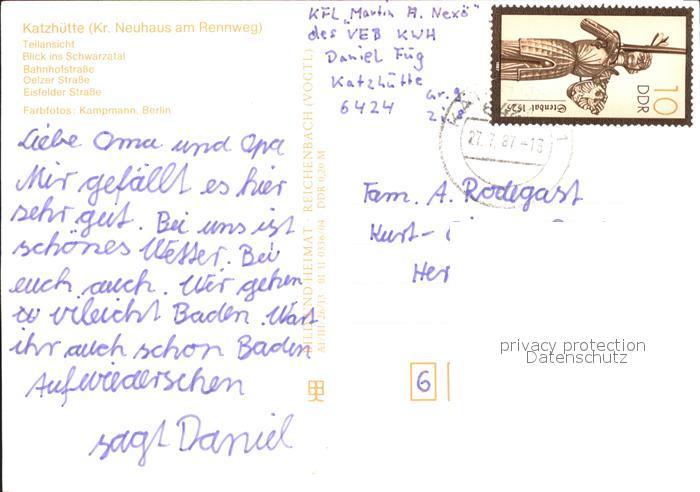 Katzhütte (Kr. Neuhaus am Rennweg)
Teilansicht
Blick ins Schwarzatal
Bahnhofstraße
Oelzer Straße
Eisfelder Straße
Farbfotos: Kampmann, Berlin
Liebe Oma und Opa
Mir gefällt es hier
sehr gut. Bei uns ist
schönes Wetter. Bei
euch auch. Wir gehen
vileicht Baden. Wart
ihr auch schon Baden
Aufwiedersehen
sagt Daniel
BILD UND HEIMAT REICHENBACH (VOGTL)
DDR 0,20 M
KFL „Martin A. Nexö"
des VEB KWH
Daniel Füg
Katzhütte
6424
Gr. 9
10
DDR
Sternbat.
27.7.87-13
Fam. A. Rodegast
Kurt-
Her
6
privacy protection
Datenschutz